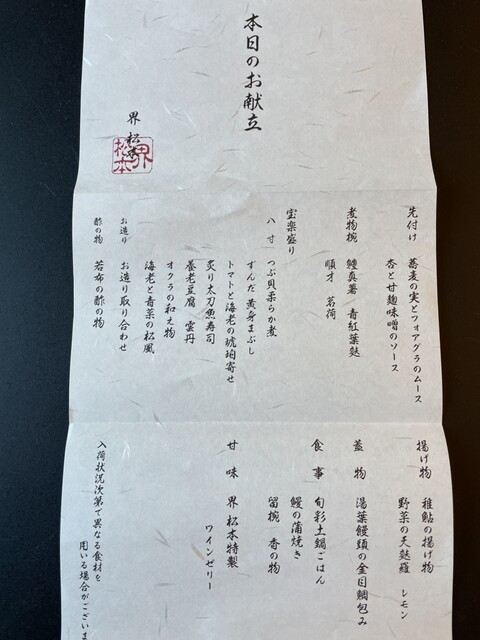 本日のお献立
界 松本
界松本
先付け 蕎麦の実とフォアグラのムース
杏と甘麹味噌のソース
煮物椀 鱧真薯 青紅葉麩
順才 茗荷
宝楽盛り
八寸 つぶ貝柔らか煮
ずんだ黄身まぶし
トマトと海老の琥珀寄せ
炙り太刀魚寿司
養老豆腐 雲丹
オクラの和え物
海老と青菜の松風
お造り お造り取り合わせ
酢の物 若布の酢の物
揚げ物 稚鮎の揚げ物
野菜の天麩羅 レモン
蓋物 湯葉饅頭の金目鯛包み
食事 旬彩土鍋ごはん
鰻の蒲焼き
留椀 香の物
甘味 界 松本特製
ワインゼリー
入荷状況次第で異なる食材を
用いる場合がございま